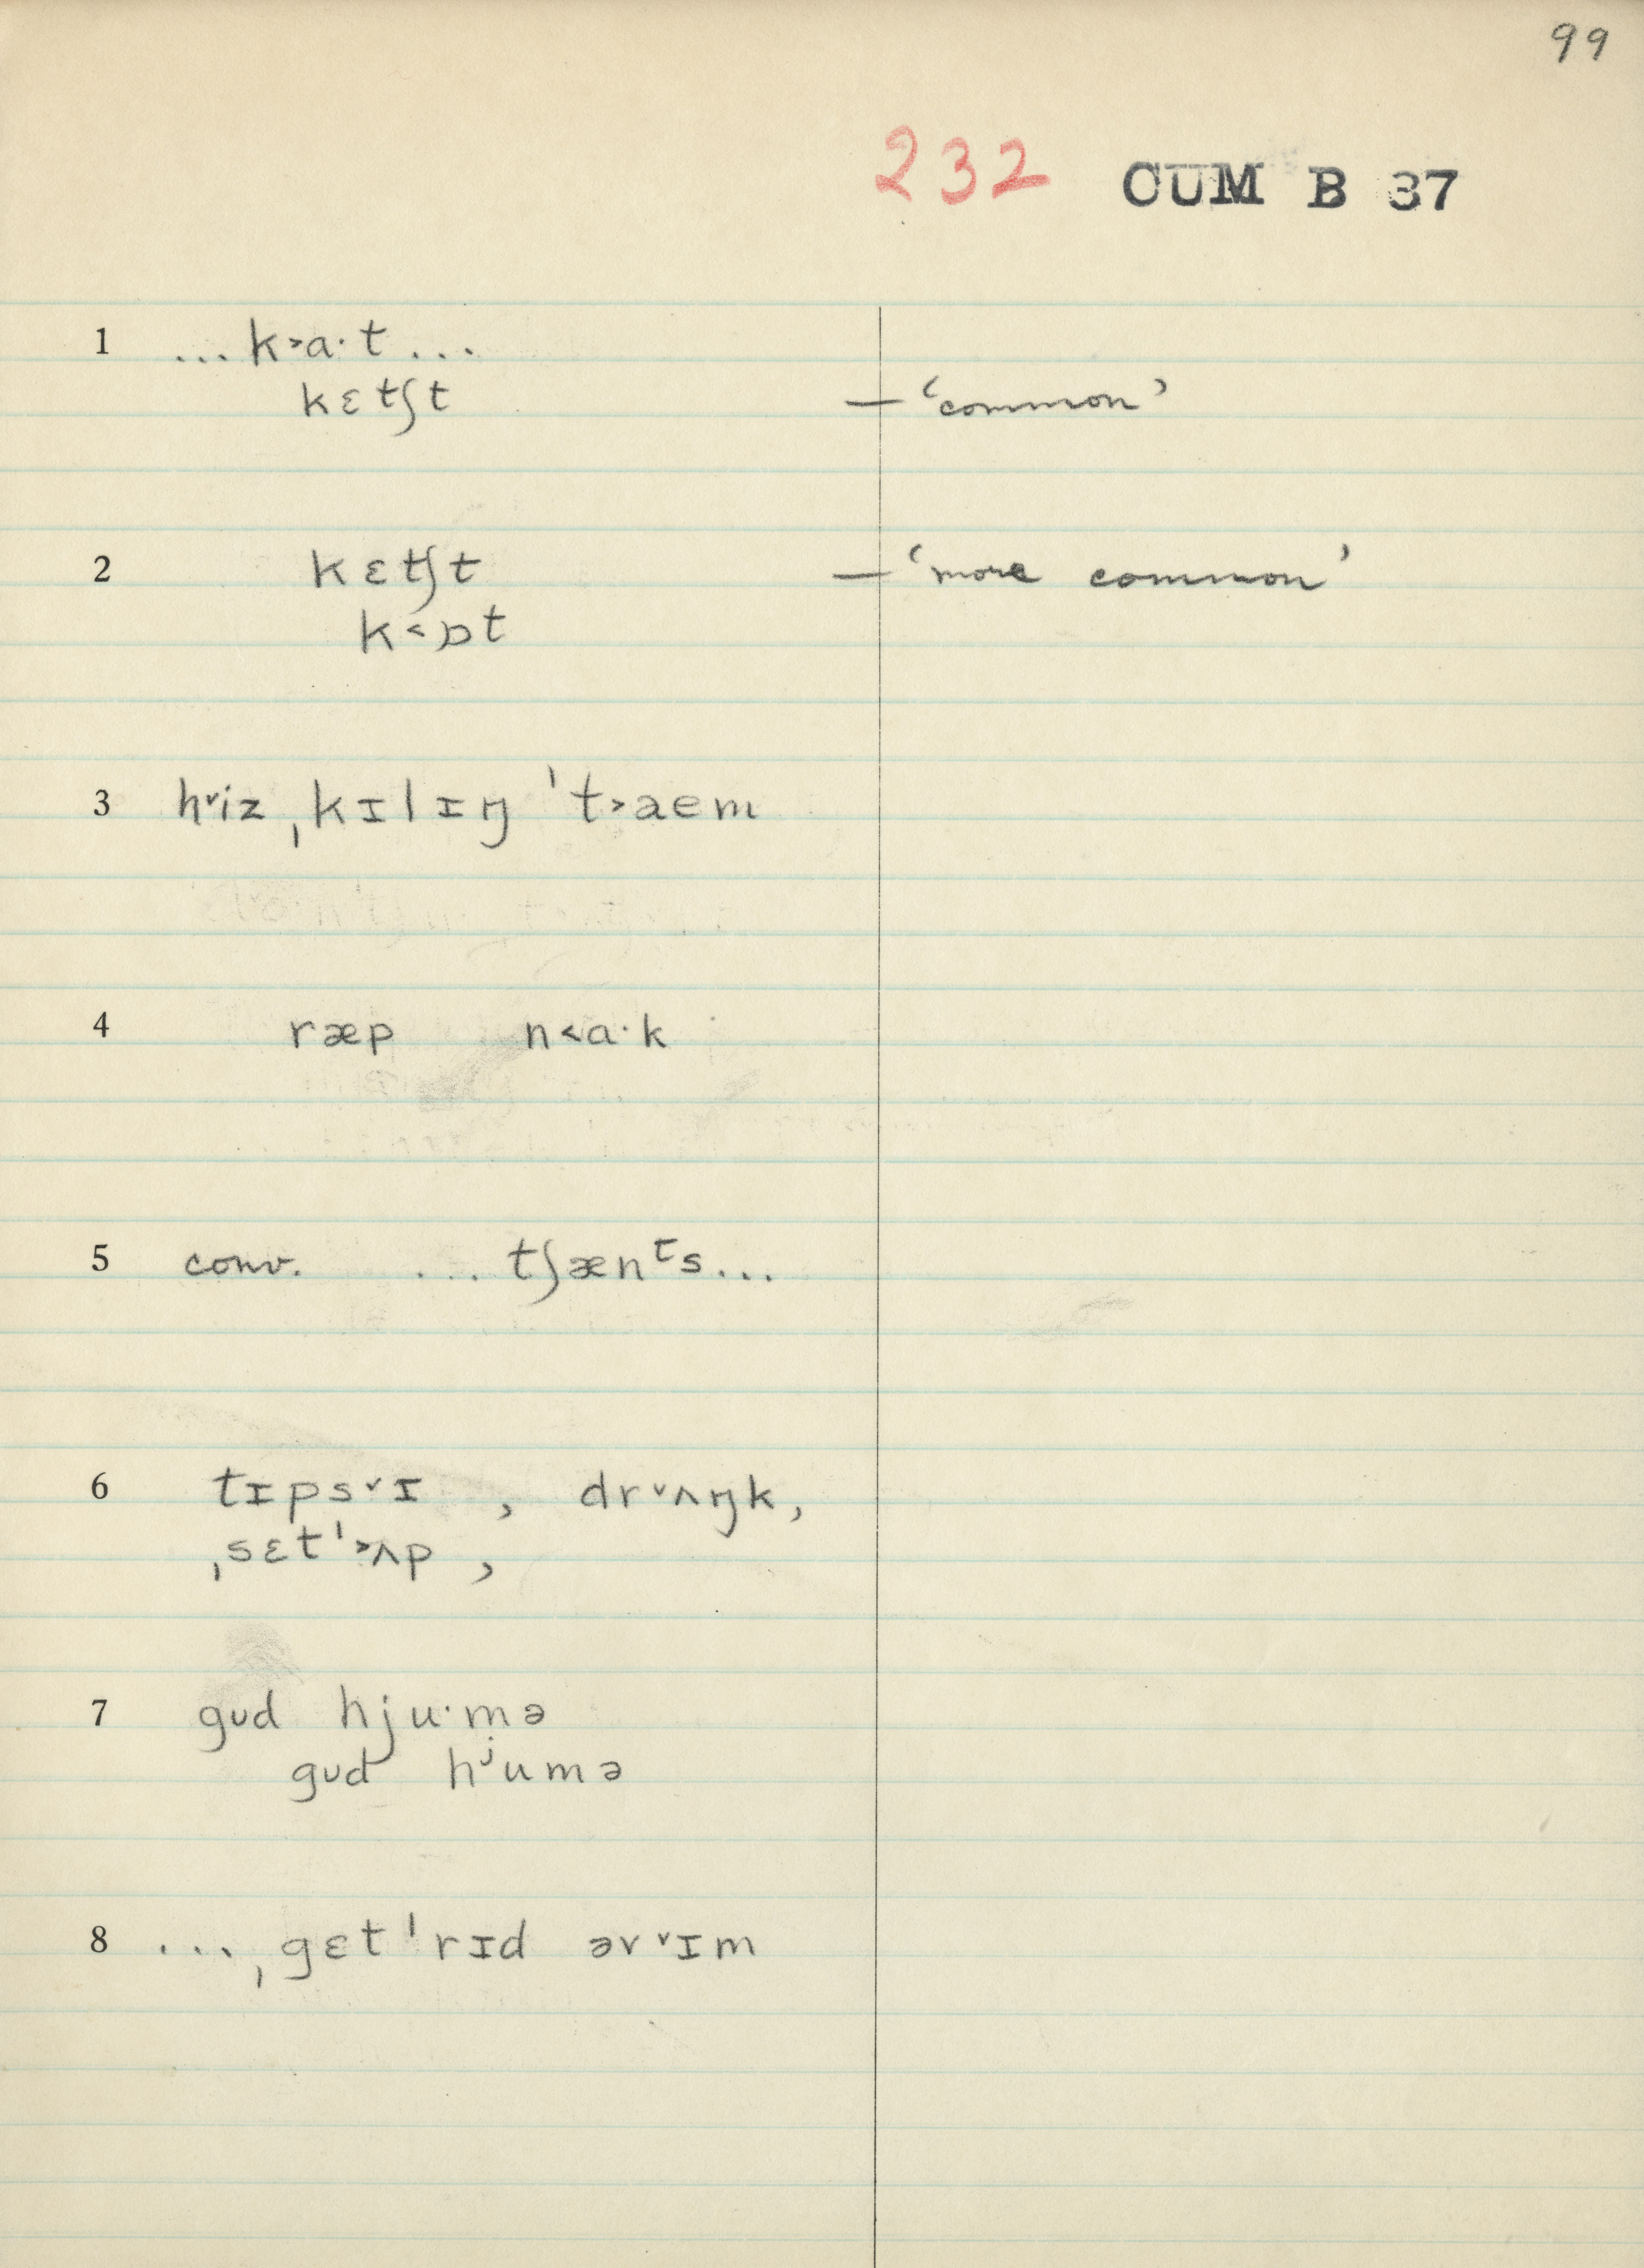 99
232 CUM B 37
1 ... k˃a·t ...
kɛtʃt — ‘common’
2 kɛtʃt — ‘more common’
k˂ɒt
3 h˅iz ˌkɪlɪŋ ˈt˃aem
4 ræp n˂a·k
5 conv. ... tʃænᵗs ...
6 tɪps˅ɪ , dr˅ʌŋk,
ˌsɛtˈ˃ʌp ,
7 gud hju·mə
gud hʲumə
8 ... ˌgɛtˈrɪd əv˅ɪm